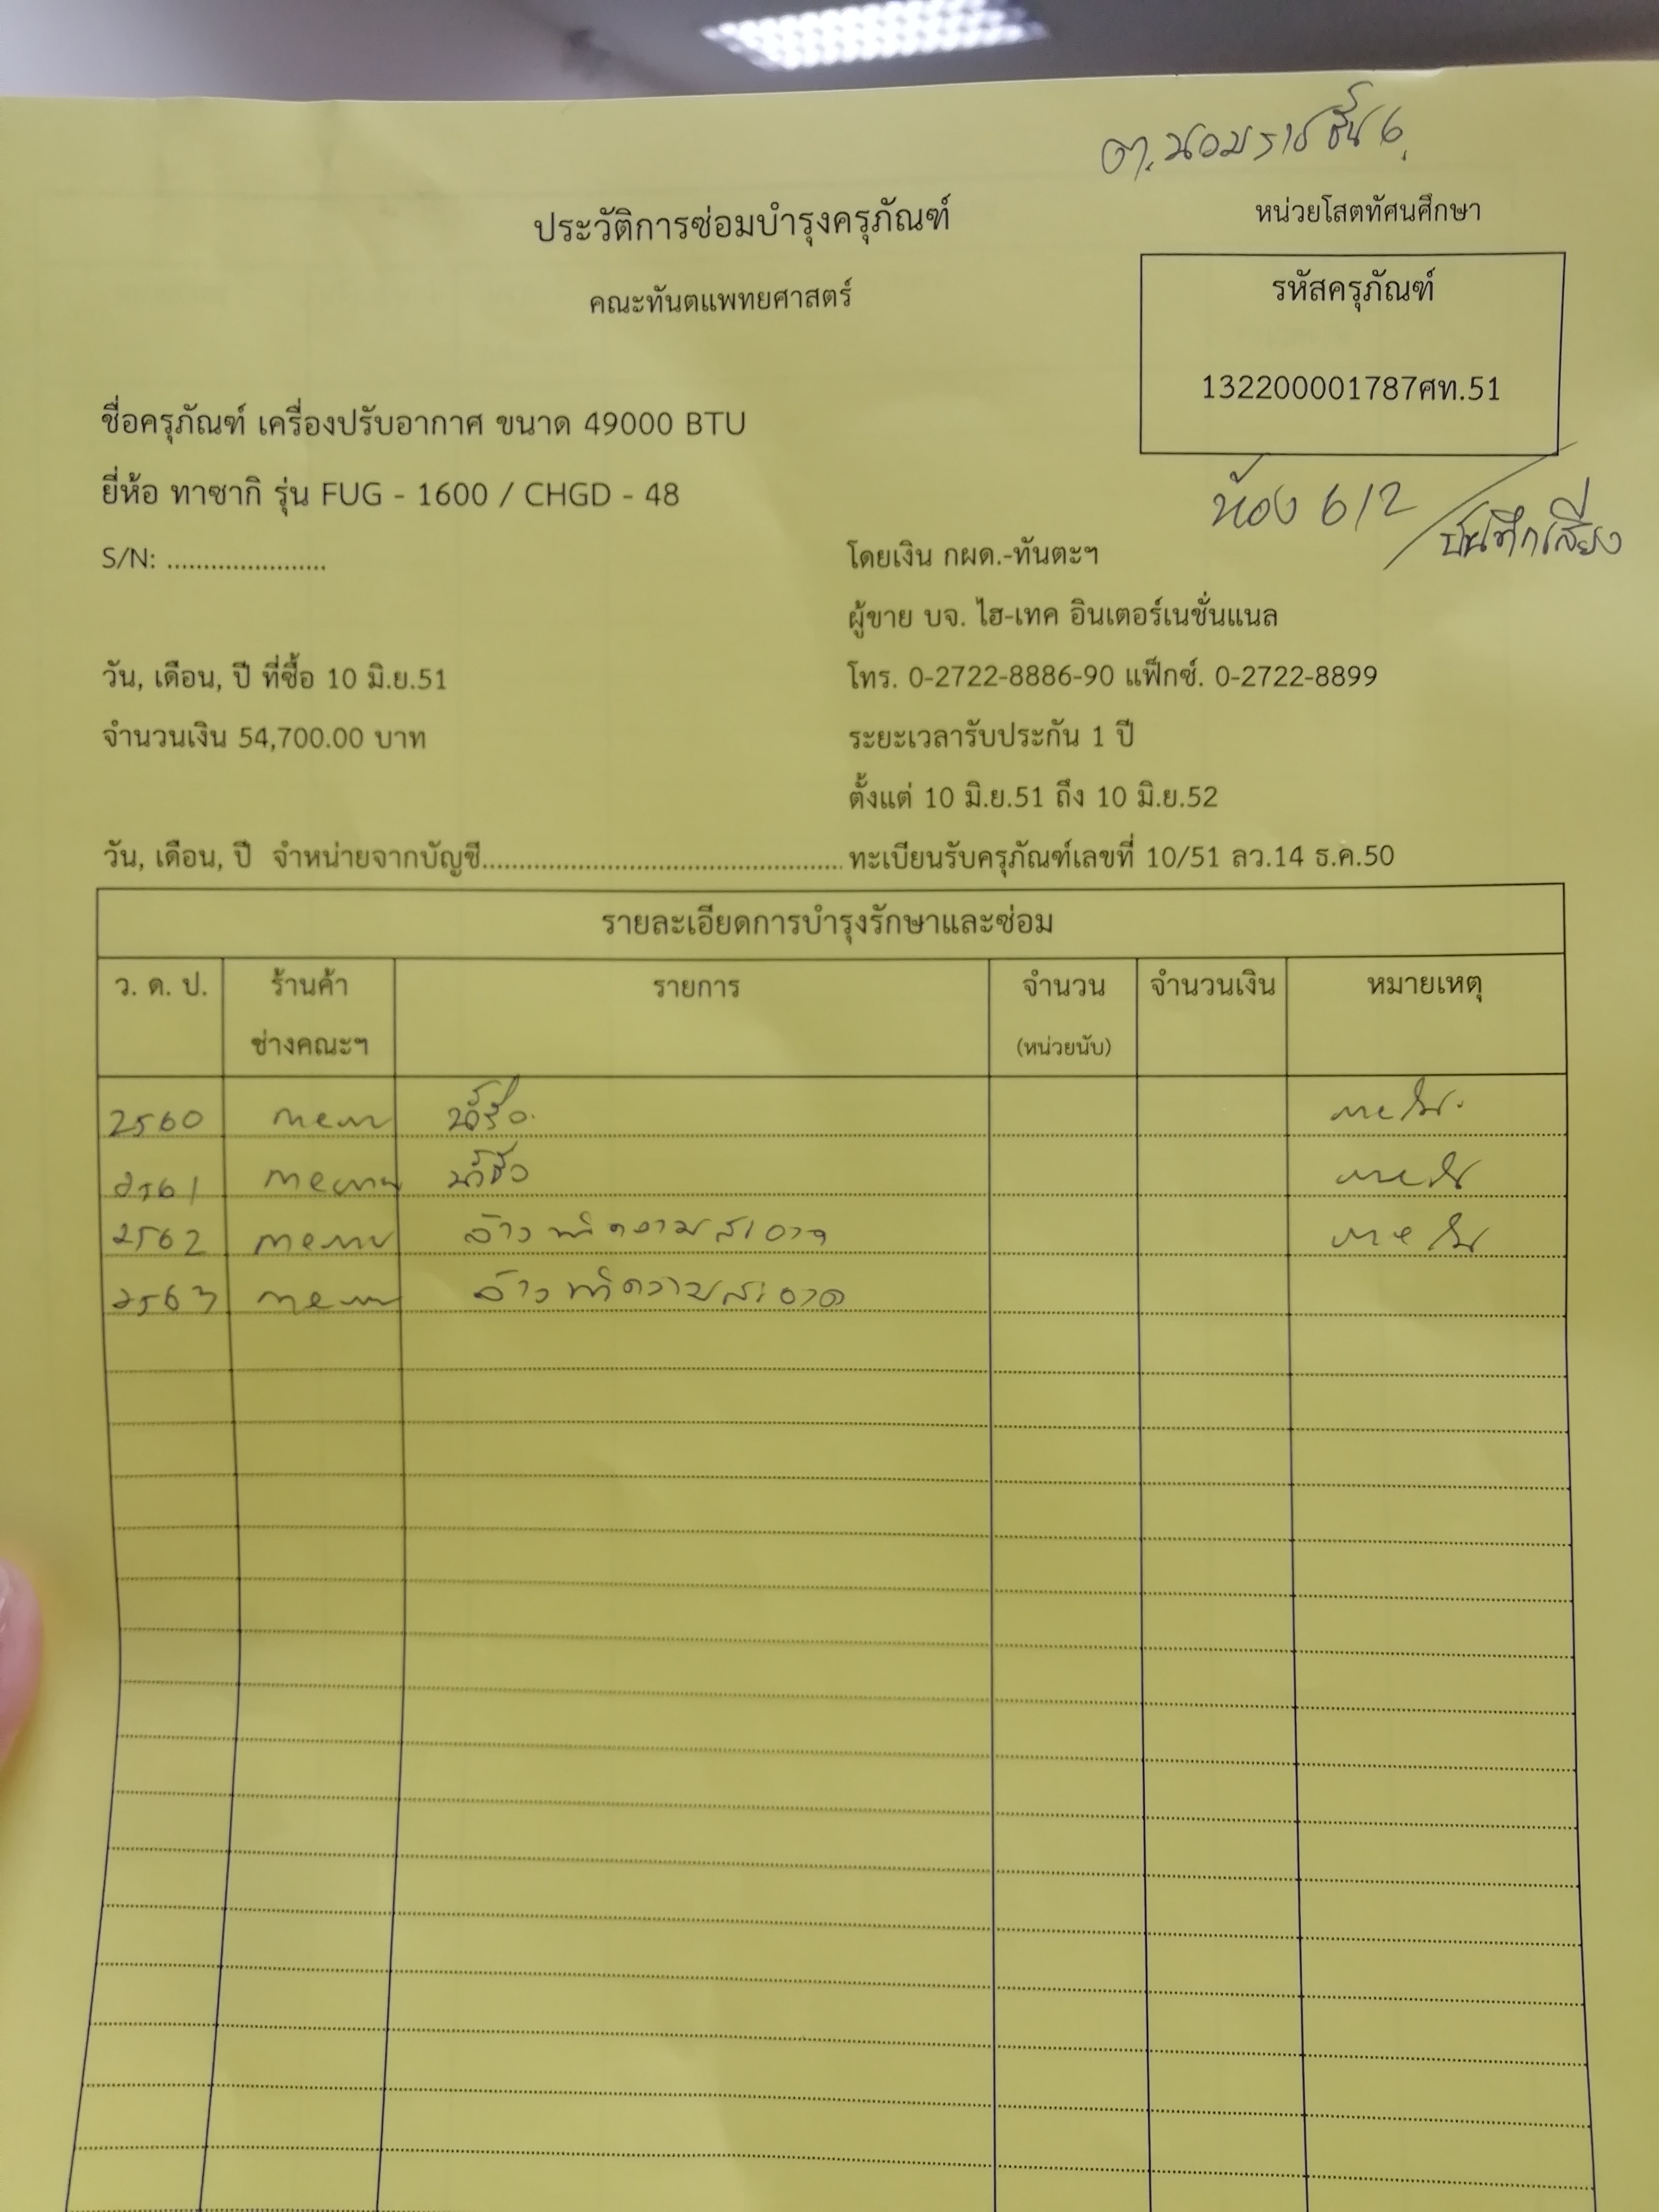 ต.นอมราช ชั้น 6.
ประวัติการซ่อมบำรุงครุภัณฑ์
หน่วยโสตทัศนศึกษา
คณะทันตแพทยศาสตร์
รหัสครุภัณฑ์
132200001787ศท.51
ชื่อครุภัณฑ์ เครื่องปรับอากาศ ขนาด 49000 BTU
ยี่ห้อ ทาซากิ รุ่น FUG - 1600 / CHGD - 48
ห้อง 612 / บันทึกเสียง
S/N: ...................... โดยเงิน กผด.-ทันตะฯ
ผู้ขาย บจ. ไฮ-เทค อินเตอร์เนชั่นแนล
วัน, เดือน, ปี ที่ซื้อ 10 มิ.ย.51 โทร. 0-2722-8886-90 แฟ็กซ์. 0-2722-8899
จำนวนเงิน 54,700.00 บาท ระยะเวลารับประกัน 1 ปี
ตั้งแต่ 10 มิ.ย.51 ถึง 10 มิ.ย.52
วัน, เดือน, ปี จำหน่ายจากบัญชี.................................................. ทะเบียนรับครุภัณฑ์เลขที่ 10/51 ลว.14 ธ.ค.50
รายละเอียดการบำรุงรักษาและซ่อม
ว. ด. ป. ร้านค้า รายการ จำนวน จำนวนเงิน หมายเหตุ
ช่างคณะฯ (หน่วยนับ)
2560
2561
2562 ล้างทำความสะอาด
2563 ล้างทำความสะอาด